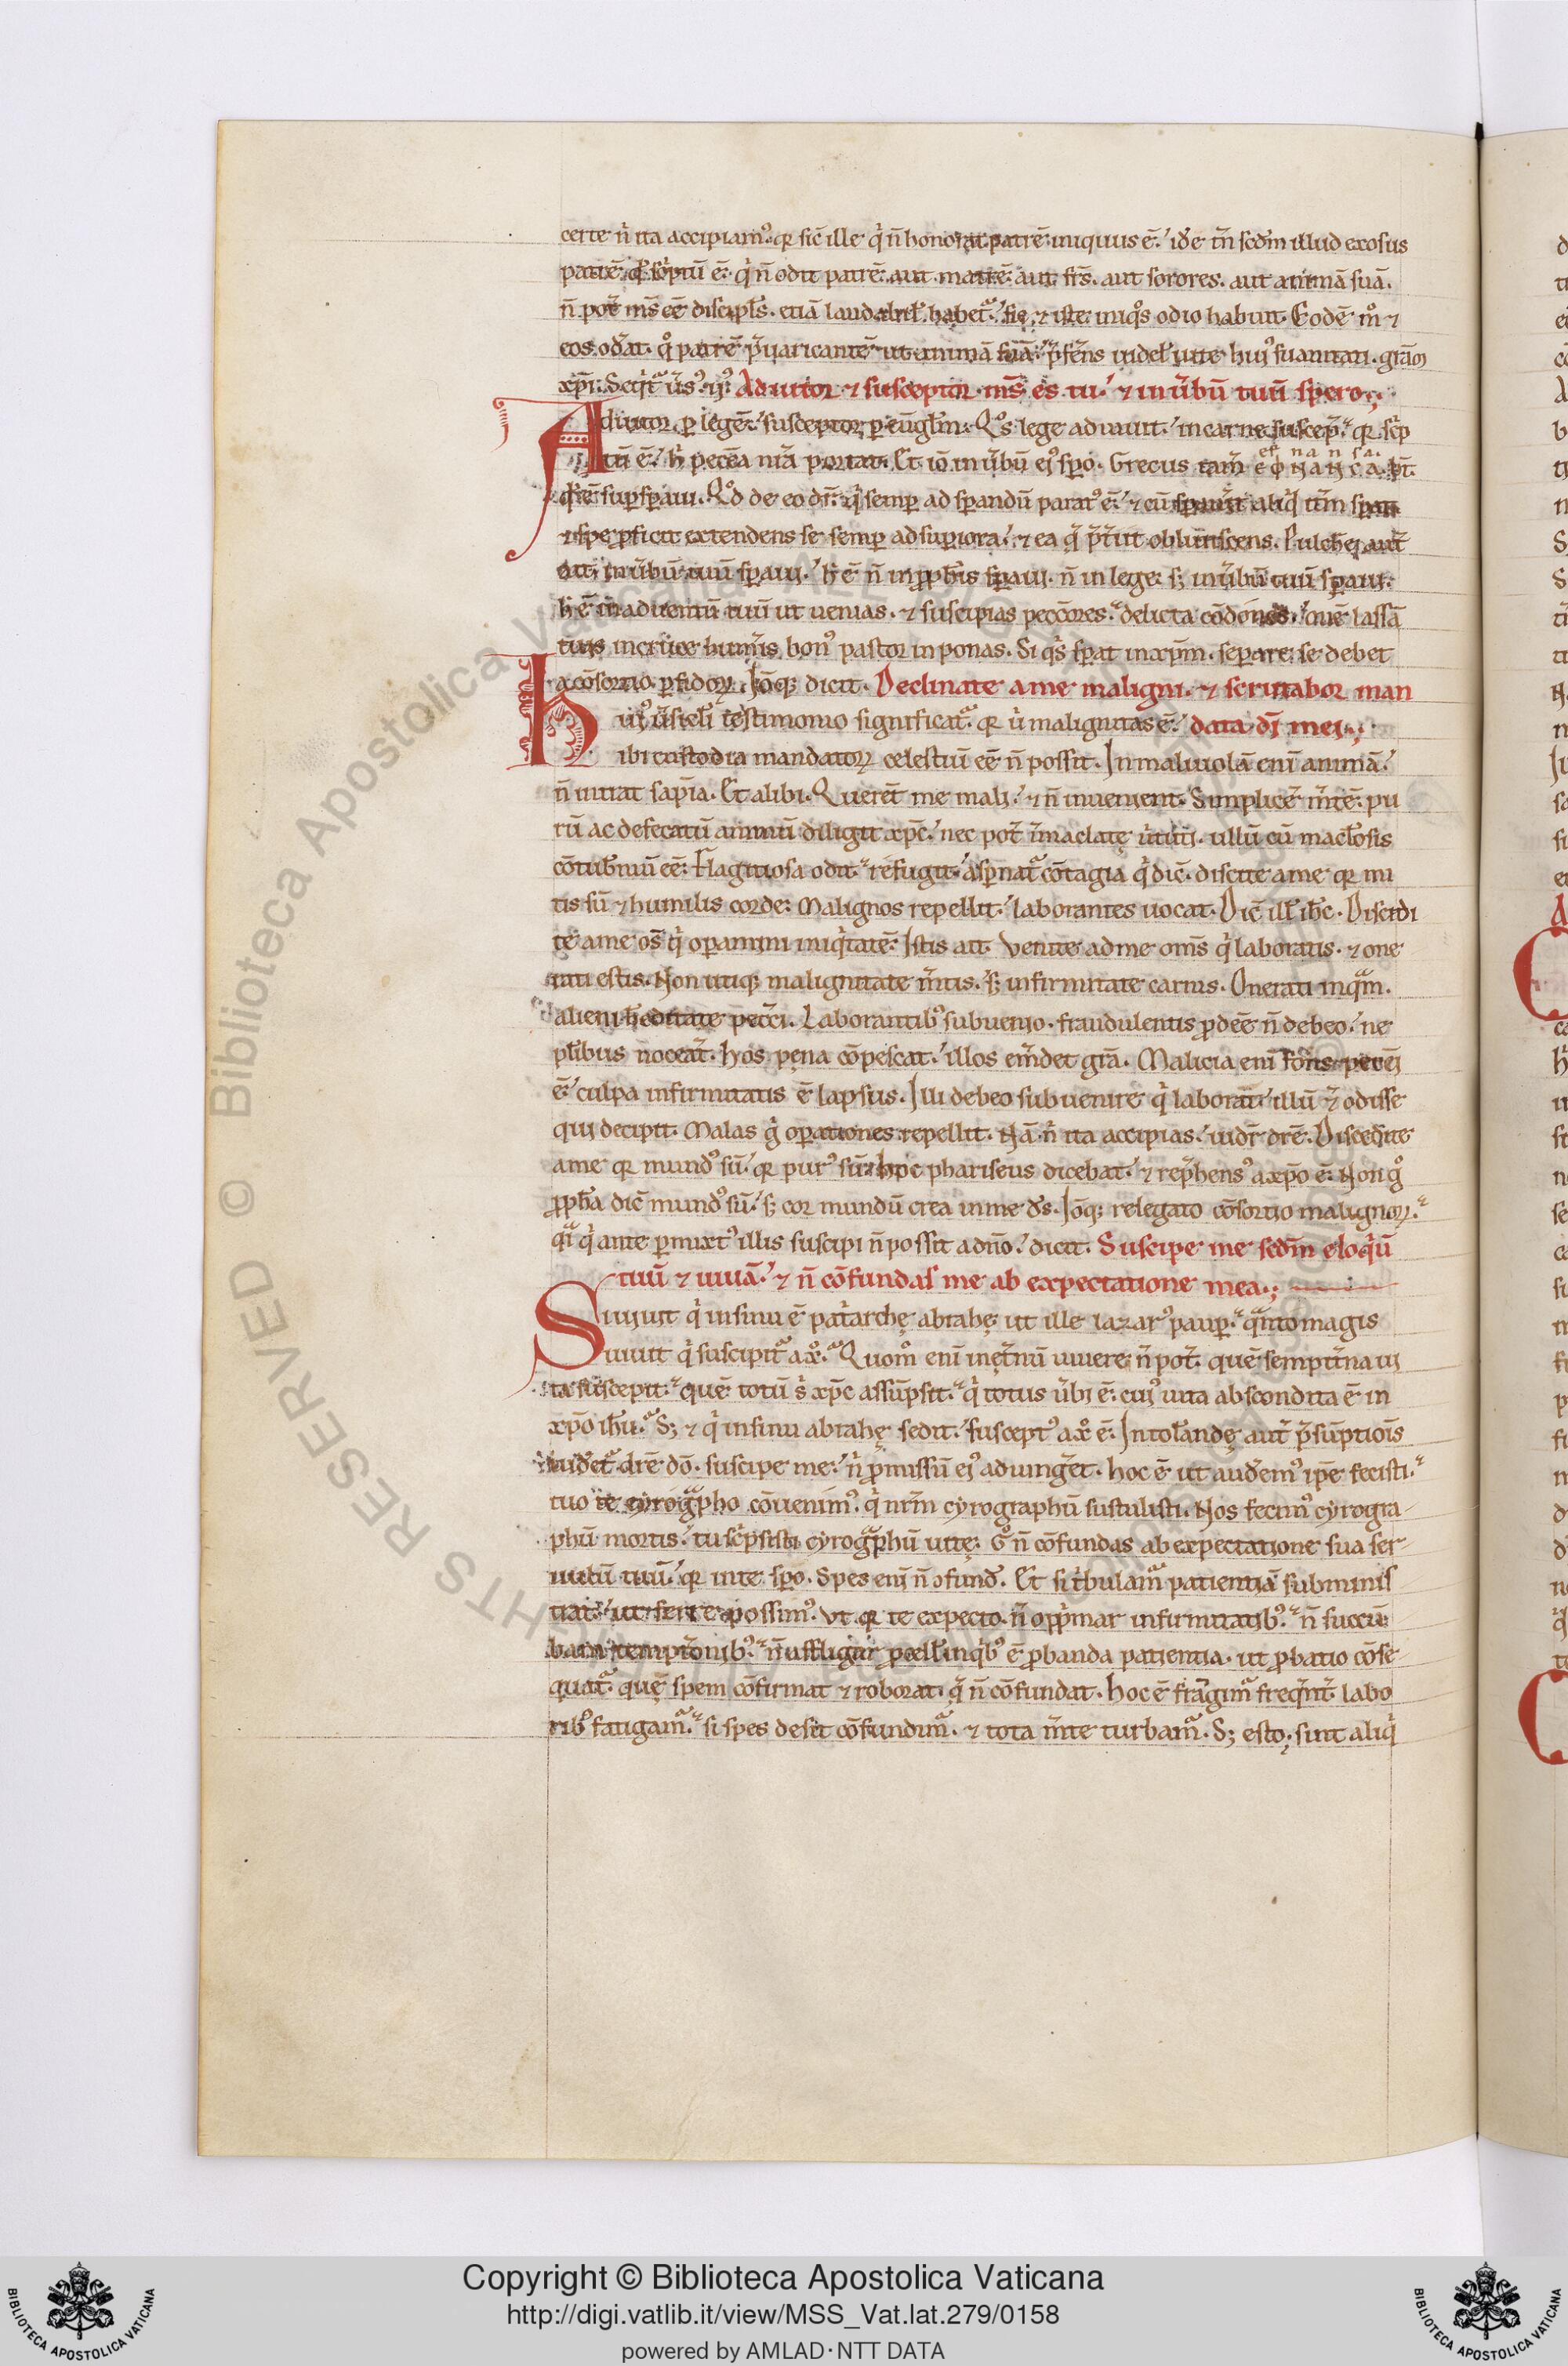 certe n̄ ita accipiamꝰ. qꝛ sic̄ ille q̇ n̄ honorat patrē iniquus ē. idē tn̄ scdm̄ illud exosus
patrē qd̄ sc̄ptū ē. q̇ n̄ odit patrē. aut matrē. aut frs̄. aut sorores. aut animā suā.
n̄ pot̄ ms̄ eē discipl̄s. etiā laudabil̄r habet᷑. sic ⁊ iste iniqͦs odio habuit. Eodē mͦ ⁊
xp̄i. Seqͥt᷑ Adiutor ⁊ susceptor ms̄ es tu. ⁊ in ūbū tuū spero.
Adiutor ꝑ legē. susceptor ꝑ eūgl̄m. Qͦs lege adiuuit. in carne suscep̄. qꝛ sc̄p
tū ē. h̓ pecc̄a nr̄a portat. Et iō in ūbū eiꝰ sꝑo. Grecus
⁊ spe ꝓficit extendens se semꝑ ad suꝑiora. ⁊ ea q̄ obliuiscens.
ait. in ūbū tuū sꝑaui. h̓ ē n̄ in ꝓph̄is sꝑaui. n̄ in lege. sꝫ in ūbū tuū sꝑaui.
h̓ ē in aduentū tuū ut uenias. ⁊ suscipias pecc̄ores. delicta cōdones. ouē lassā
tuis in cruce humis bonꝰ pastor inponas. Si qͥs sꝑat in xp̄m. separare se debet
a cōsortio ꝑfidoꝝ. Iōqꝫ dicit. Declinate a me maligni. ⁊ scrutabor man
testimonio significat᷑. qꝛ ů malignitas ē. data dī mei.
ibi custodia mandatoꝝ celestiū eē n̄ possit. In maliuolā enī animā.
n̄ intrat sapīa. Et alibi. Querēt me mali. ⁊ n̄ inuenient. Simplicē m̄tē. pu
rū ac defecatū animū diligit xp̄c. nec pot̄
cōtub̄niū eē. Flagitiosa odit. refugit. asꝑnat᷑ cōtagia q̇ dic̄. discite a me qꝛ mi
tis sū ⁊ humilis corde. Malignos repellit. laborantes uocat. Dic̄ ill̄ ih̄c. Discedi
te a me os̄ q̇ oꝑamini iniqͥtatē. Istis ait. Venite ad me oms̄ q̇ laboratis. ⁊ one
rati estis. Non utiqꝫ malignitate m̄tis. sꝫ infirmitate carnis. Onerati inqᷓm.
alieni h̄editate pecc̄i. Laborantibꝰ subuenio. fraudulentis ꝓdeē n̄ debeo. ne
pl̄ibus noceat᷑. Hos pęna cōpescat. illos em̄det grā. Malicia enī
ē. culpa infirmitatis ē lapsus. Illi debeo subuenire q̇ laborat. illū odisse
qui decipit. Malas g̊ oꝑationes repellit. Nā n̄ ita accipias. uidr̄ dr̄ē. Discedite
a me qꝛ mundꝰ sū. qꝛ purꝰ sū. hoc phariseus dicebat. ⁊ rep̄hensꝰ a xp̄o ē. Non g̊
ꝓph̄a dic̄ mundꝰ sū. sꝫ cor mundū crea in me ds̄. Iōqꝫ relegato cōsortio malignoꝝ.
qᷓi q̇ ante ꝑmixtꝰ illis suscipi n̄ possit a dn̄o. dicit. Suscipe me scdm̄ eloqͥū
tuū ⁊ uiuā. ⁊ n̄ cōfundas me ab expectatione mea.
Si uiuit q̇ in sinu ē patͥarchę abrahę ut ille lazarꝰ pauꝑ. qᷓnto magis
uiuit q̇ suscipit᷑ a xͦ. Quomͦ enī in et̄nū uiuere n̄ pot̄. quē sempit̄na ui
ta suscepit. quē totū s̄ xp̄c assūpsit. q̇ totus ūbi ē. cuiꝰ uita abscondita ē in
xp̄o ih̄u. Sꝫ ⁊ q̇ in sinu abrahę sedit. susceptꝰ a xͦ ē. Intol̄andę aut̄ p̄sūptiōis
uideret᷑ dr̄ē dō. suscipe me. n̄ ꝓmissū eiꝰ adiung̃et. hoc ē ut audemꝰ ip̄e fecisti.
tuo te cyrogᷓpho cōuenimꝰ. q̇ nrm̄ cyrographū sustulisti. Nos fecimꝰ cyrogra
phū mortis. tu scͥpsisti cyrogᷓphū uitę. G̊ n̄ cōfundas ab expectatione sua ser
uulū tuū. qꝛ in te sꝑo. Spes enī n̄ ꝯfund̄. Et si tͥbulam᷑ patientiā subminis
trat. ut ferre possimꝰ. Vt qꝛ te expecto. n̄ oppͥmar infirmitatibꝰ. n̄ succū
bam temptōnibꝰ. n̄ affligar ꝓcell̄. in qͥbꝰ ē ꝓbanda patientia. ut ꝓbatio cōse
quat᷑. quę spem cōfirmat ⁊ roborat. q̄ n̄ cōfundat. Hoc ē frāgim᷑ freqn̄t. labo
ribꝰ fatigam᷑. si spes desit cōfundim᷑. ⁊ tota m̄te turbam᷑. Sꝫ esto. sint aliq̇
© Biblioteca Apostolica Vaticana ALL RIGHTS RESERVED
Copyright © Biblioteca Apostolica Vaticana
http://digi.vatlib.it/view/MSS_Vat.lat.279/0158
powered by AMLAD·NTT DATA
BIBLIOTECA APOSTOLICA VATICANA
BIBLIOTECA APOSTOLICA VATICANA